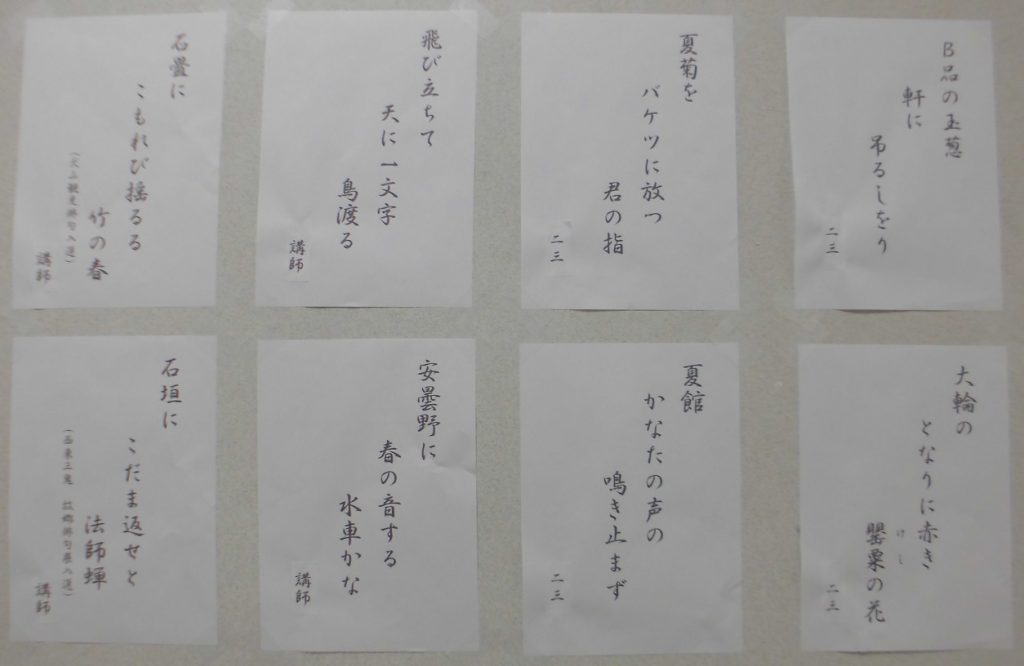 B品の玉葱
軒に
吊るしをり
二三
夏菊を
バケツに放つ
君の指
二三
飛び立ちて
天に一文字
鳥渡る
講師
石畳に
こもれび揺るる
竹の春
(犬山観光俳句入選)
講師
大輪の
となりに赤き
罌粟の花
けし
二三
夏館
かなたの声の
鳴き止まず
二三
安曇野に
春の音する
水車かな
講師
石垣に
こだま返せと
法師蝉
(西東三鬼 故郷俳句展入選)
講師